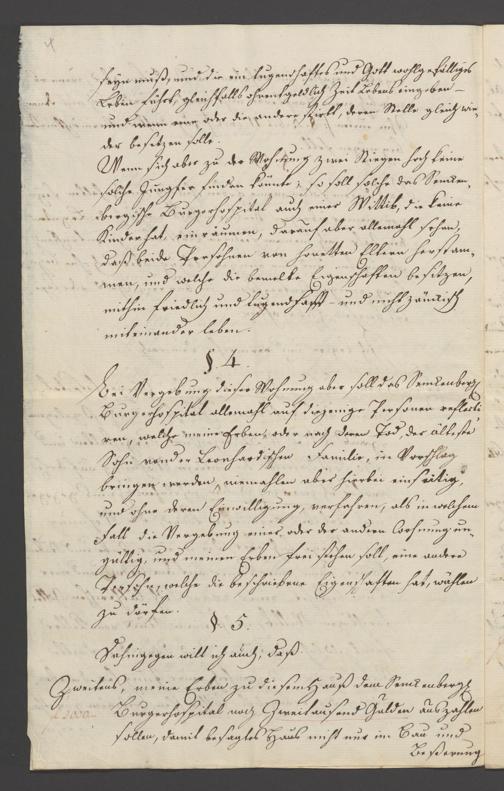 seyn muß, und die ein tugendhaftes und Gott wohlgefälliges
Leben führt, gleichfalls ohnentgeldlich Zeit Lebens eingeben –
und wenn eine oder die andere stirbt, deren Stelle gleich wie-
der besitzen solle.
Wenn sich aber zu der Wohnung zwei Stiegen hoch keine
solche Jungfer finden könnte; so soll solche das Sencken-
bergische Burgerhospital auch einer Wittib, die keine
Kinder hat, einräumen, darauf aber allemahl sehen,
daß beide Persohnen von honetten Eltern herstam-
men, und welche die bemelte Eigenschaften besitzen,
mithin friedlich und tugendhafft – und nicht zänkisch
miteinander leben.
§ 4
Bei Vergebung dieser Wohnung aber soll das Senckenberg.
Burgerhospital allemahl auf diejenige Personen reflecti
ren, welche meine Erben, oder nach deren Tod, der älteste
Sohn von der Leonhardischen Familie, in Vorschlag
bringen werden, niemahlen aber hierbei einseitig,
und ohne deren Einwilligung, verfahren, als in welchem
Fall die Vergebung einer oder der andern Wohnung un-
gültig, und meinen Erben frei stehen soll, eine andere
Persohn, welche die beschriebene Eigenschaften hat, wählen
zu dörfen.
§. 5.
Dahingegen will ich auch, daß
Zweitens, meine Erben zu diesem Hauß dem Senckenberg.
Burgerhospital noch Zweitausend Gulden auszahlen
sollen, damit besagtes Haus nicht nur im Bau und
Beßerung